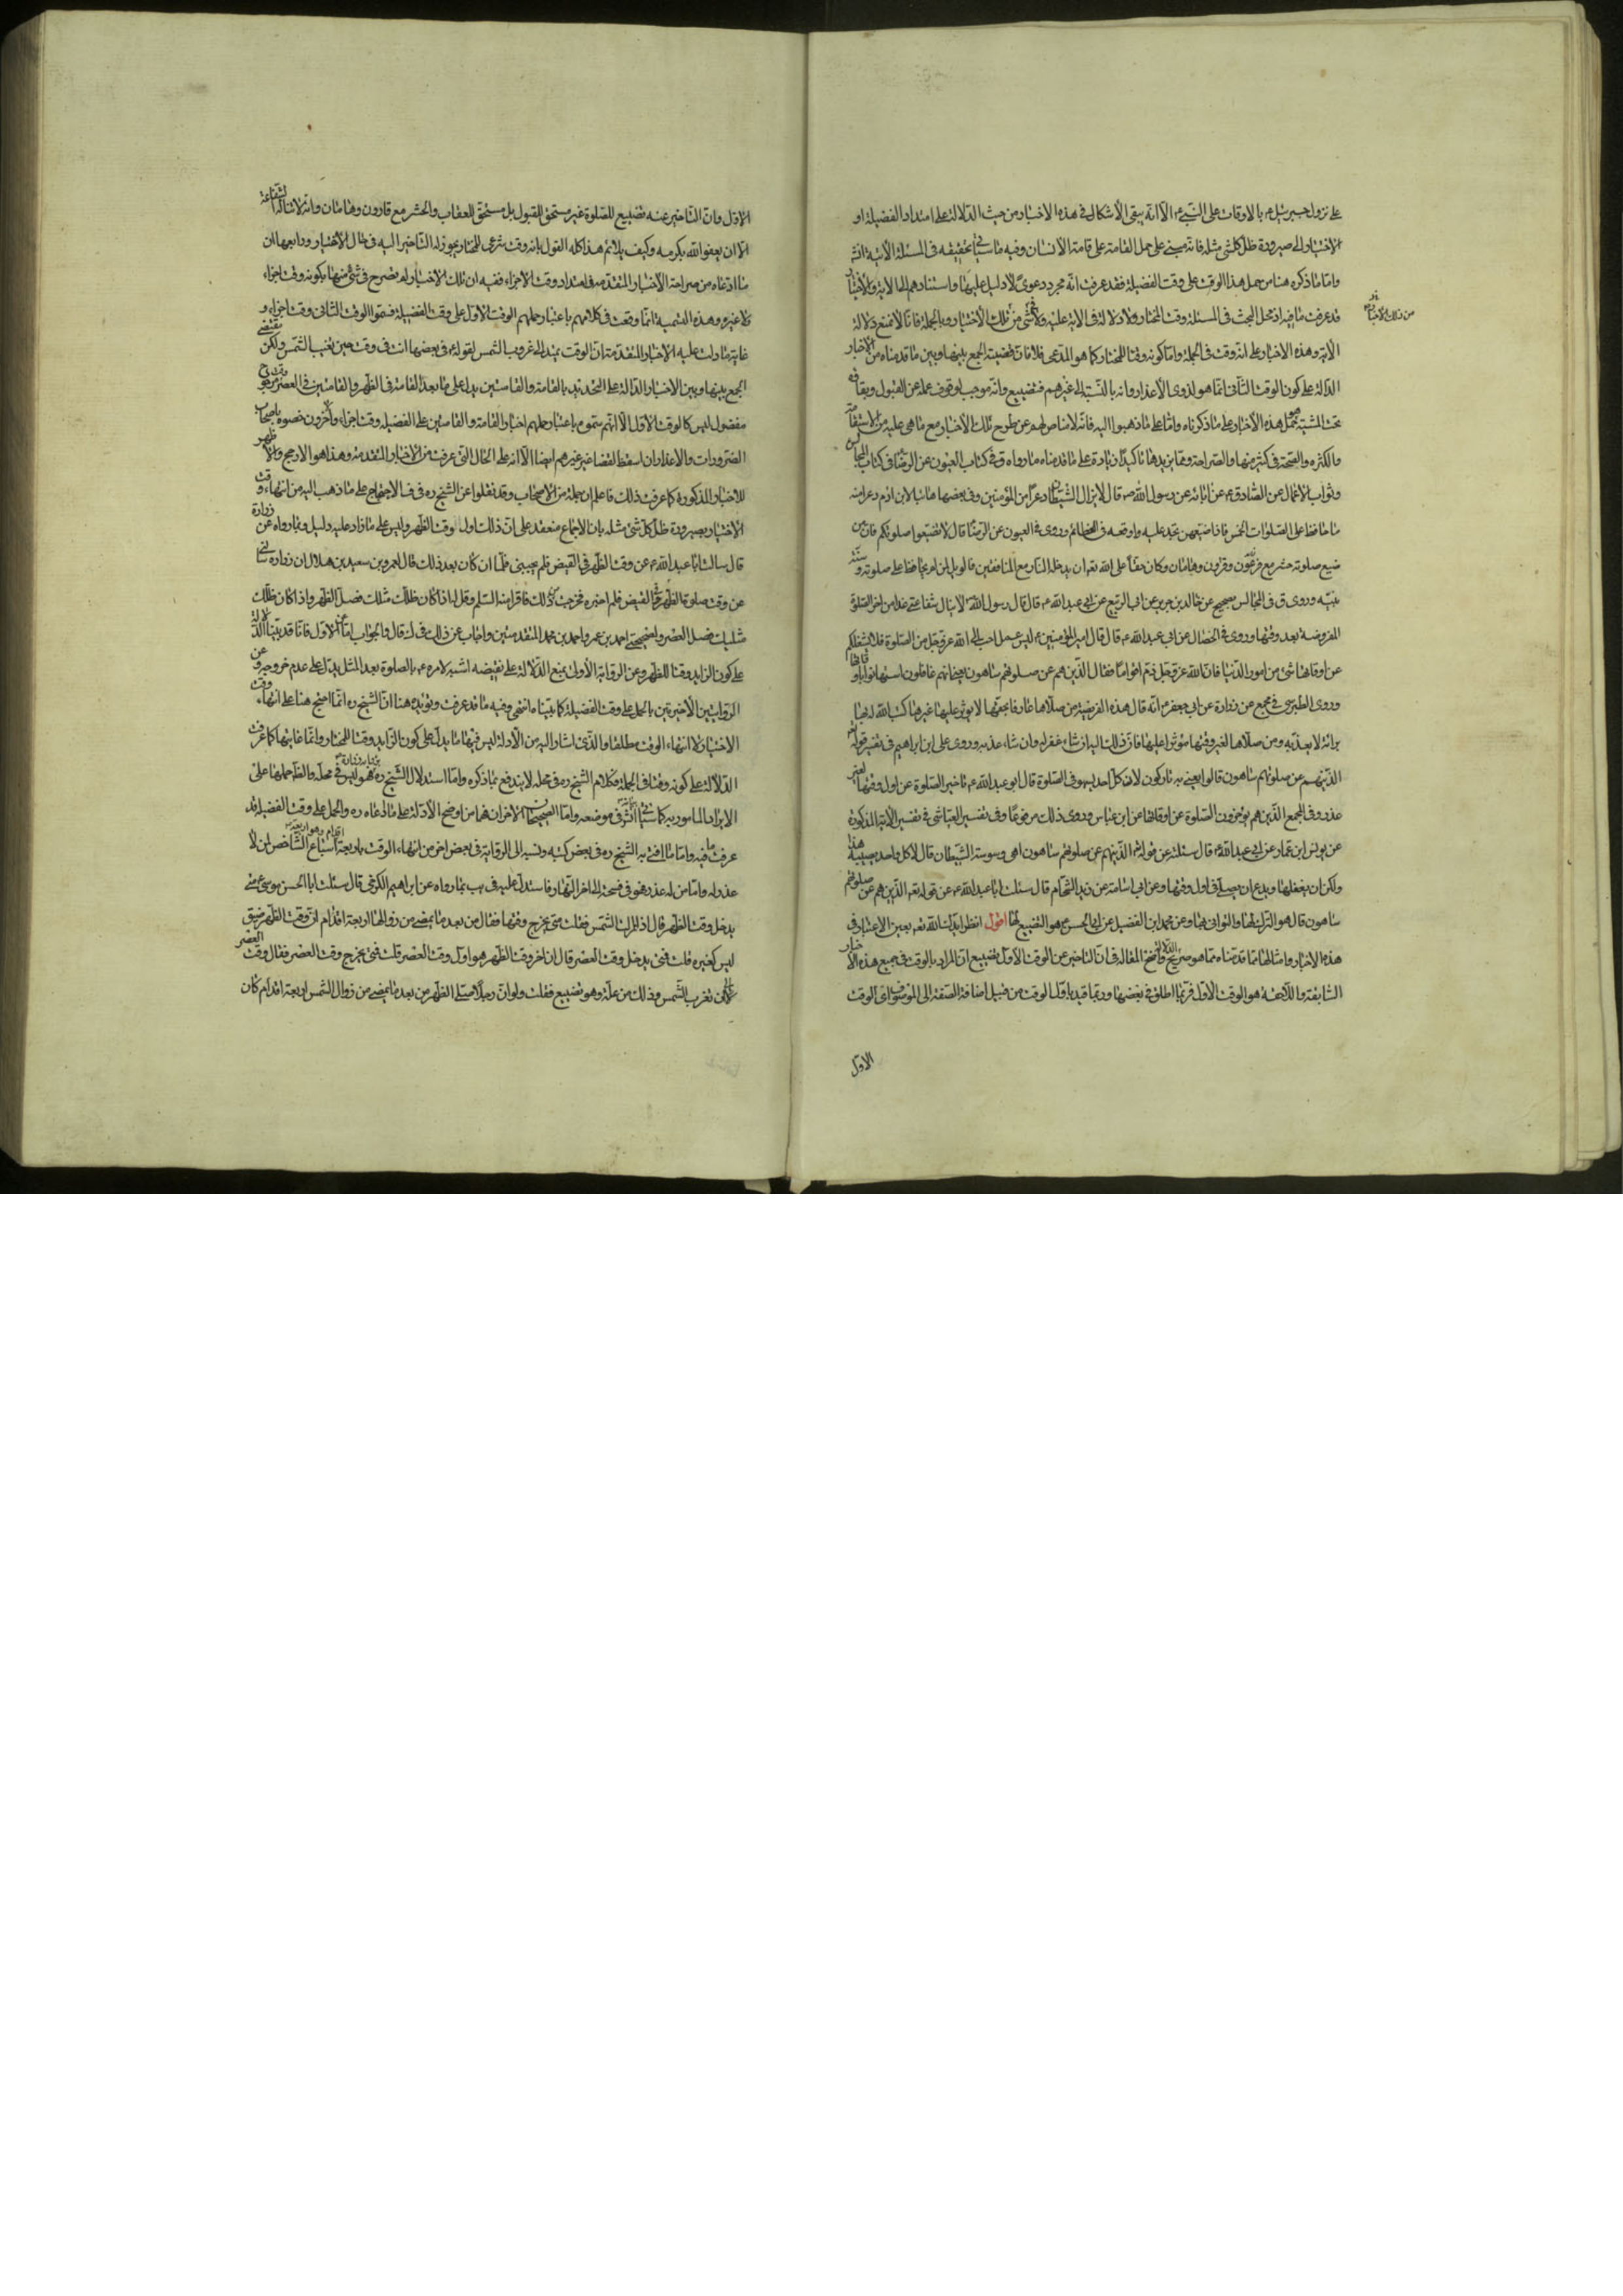 على نزول جبرئيل ع بالاوقات على النبي ص الا انه يبقى الاشكال في هذه الاخبار من حيث الدلالة على امتداد الفضيلة او
الاختيار الى صيرورة ظل كل شئ مثله فانه مبني على حمل القامة على قامة الانسان وفيه ما سياتي تحقيقه في المسئلة الاتية انش
واما ما ذكره هنا من حمل هذا الوقت على وقت الفضيلة فقد عرفت انه مجرد دعوى لا دليل عليها واستنادهم الى الاية والاخبار
قد عرفت ما فيه اذ محل البحث في المسئلة وقت المختار ولا دلالة في الاية عليه ولا في شئ من تلك الاخبار وبالجملة فانا لا نمنع دلالة
من تلك الاخبار
الاية وهذه الاخبار على انه وقت في الجملة واما كونه وقتا للمختار كما هو المدعى فلا فان قضية الجمع بينها وبين ما قدمناه من الاخبار
الدالة على كون الوقت الثاني انما هو لذوي الاعذار وانه بالنسبة الى غيرهم تضييع وانه موجب لوقوف عمله عن القبول وبقائه
تحت المشية هو حمل هذه الاخبار على ما ذكرناه واما على ما ذهبوا اليه فانه لا مناص لهم عن طرح تلك الاخبار مع ما هي عليه من الاستفاضة
والكثرة والصحة في كثير منها والصراحة ومما يزيدها تاكيدا زيادة على ما قدمناه ما رواه ق في كتاب العيون عن الرضا وفي كتاب المجالس
وثواب الاعمال عن الصادق ع عن ابائه عن رسول الله ص قال لا يزال الشيطان ذعرا من المؤمنين وفي بعضها هائبا لابن ادم ذعرا منه
ما حافظ على الصلوات الخمس فاذا ضيعهن تجرء عليه واوقعه في العظائم وروى في العيون عن الرضا قال لا تضيعوا صلوتكم فان من
ضيع صلوته حشر مع فرعون وقارون وهامان وكان حقا على الله تعه ان يدخله النار مع المنافقين فالويل لمن لم يحافظ على صلوته وسنة
نبيه وروى ق في المجالس بصحيح عن خالد بن جرير عن ابي الربيع عن ابي عبد الله ع قال قال رسول الله ص لا ينال شفاعتي غدا من اخر الصلوة
المفروضة بعد وقتها وروى في الخصال عن ابي عبد الله ع قال قال امير المؤمنين ع ليس عمل احب الى الله عز وجل من الصلوة فلا يشغلكم
عن اوقاتها شئ من امور الدنيا فان الله عز وجل ذم اقواما فقال الذين هم عن صلوتهم ساهون يعني انهم غافلون استهانوا باوقاتها
وروى الطبرسي في مجمع عن زرارة عن ابي جعفر ع انه قال هذه الفريضة من صلاها عارفا بحقها لا يؤثر عليها غيرها كتب الله له بها
براءة لا يعذبه ومن صلاها لغير وقتها مؤثرا عليها فان ذلك اليه ان شاء غفر له وان شاء عذبه وروى علي ابن ابراهيم في تفسير قوله تع
الذين هم عن صلوتهم ساهون قال يعني به تاركون لان كل احد يسهو في الصلوة قال ابو عبد الله ع تاخير الصلوة عن اول وقتها لغير
عذر وفي المجمع الذين هم يؤخرون الصلوة عن اوقاتها عن ابن عباس وروى ذلك مرفوعا وفي تفسير العياشي في تفسير الاية المذكورة
عن يونس ابن عمار عن ابي عبد الله ع قال سئلته عن قوله تع الذين هم عن صلوتهم ساهون اهي وسوسة الشيطان قال لا كل واحد يصيبه هذا
ولكن ان يغفلها ويدع ان يصلي في اول وقتها وعن ابي اسامة عن زيد الشحام قال سئلت ابا عبد الله ع عن قوله تعه الذين هم عن صلوتهم
ساهون قال هو الترك لها والتواني عنها وعن محمد ابن الفضيل عن ابي الحسن ع هو التضييع لها اقول انظر ايدك الله تعه بعين الاعتبار في
هذه الاخبار وامثالها مما قدمناه مما هو صريح الدلالة واضح المقالة في ان التاخير عن الوقت الاول تضييع اذ المراد بالوقت في جميع هذه الاخبار
السابقة واللاحقة هو الوقت الاول فربما اطلق في بعضها وربما قيد باول الوقت من قبيل اضافة الصفة الى الموصوف اي الوقت
الاول
الاول وان التاخير عنه تضييع للصلوة غير مستحق للقبول بل مستحق للعقاب والحشر مع قارون وهامان وانه لا تناله الشفاعة
الا ان يعفو الله بكرمه وكيف يلائم هذا كله القول بانه وقت شرعي للمختار يجوز له التاخير اليه في حال الاختيار ورابعها ان
ما ادعاه من صراحة الاخبار المتقدمة في امتداد وقت الاجزاء ففيه ان تلك الاخبار لم يصرح في شئ منها بكونه وقت اجزاء
ولا غيره وهذه التسمية انما وقعت في كلامهم باعتبار حملهم الوقت الاول على وقت الفضيلة فسموا الوقت الثاني وقت اجزاء و
غاية ما دلت عليه الاخبار المتقدمة ان الوقت يمتد الى غروب الشمس لقوله ع في بعضها انت في وقت حتى تغيب الشمس ولكن مقتضى
الجمع بينها وبين الاخبار الدالة على التحديد بالقامة والقامتين يدل على ما بعد القامة في الظهر والقامتين في العصر وقت مرجوح
مفضول ليس كالوقت الاول الا انهم سموه باعتبار حملهم اخبار القامة والقامتين على الفضيلة وقت اجزاء واخرون خصوه باصحاب
الضرورات والاعذار ان اسقط القضاء عن غيرهم ايضا الا انه على الحال التي عرفت من الاخبار المتقدمة وهذا هو الارجح والاظهر
للاخبار المذكورة كما عرفت ذلك فاعلم ان جملة من الاصحاب وقد نقلوا عن الشيخ ره في ف الاحتجاج على ما ذهب اليه من انتهاء وقت
الاختيار بصيرورة ظل كل شئ مثله بان الاجماع منعقد على ان ذلك اول وقت الظهر وليس على ما زاد عليه دليل وبما رواه عن زرارة
قال سالت ابا عبد الله ع عن وقت الظهر في القيض فلم يجبني فلما ان كان بعد ذلك قال لعمرو بن سعيد بن هلال ان زرارة سالني
عن وقت صلوة الظهر في القيض فلم اخبره فخرجت من ذلك فاقرأه منه السلام وقل له اذا كان ظلك مثلك فصل الظهر واذا كان ظلك
مثليك فصل العصر وبصحيحتي احمد بن عمر واحمد بن محمد المتقدمتين واجاب عن ذلك في ك قال والجواب اما عن الاول فانا قد بينا الدلالة
على كون الزايد وقتا للظهر وعن الرواية الاولى بمنع الدلالة على نقيضه اشبه لامره ع بالصلوة بعد المثل يدل على عدم خروجه وعن
الروايتين الاخيرتين بالحمل على وقت الفضيلة كما بيناه انتهى وفيه ما قد عرفت ونؤيده هنا ان الشيخ ره انما احتج هنا على انتهاء وقت
الاختيار لا انتهاء الوقت مطلقا والذي اشار اليه من الادلة ليس فيها ما يدل على كون الزايد وقتا للمختار وانما غايتها كما عرفت
الدلالة على كونه وقتا في الجملة فكلام الشيخ ره في محله لا يندفع بما ذكره واما استدلال الشيخ ره برواية زرارة فهو ليس في محله والظ حملها على
الابراد المامور به كما سياتي انش في موضعه واما الصحيحتان الاخرتان فهما من اوضح الادلة على ما ادعاه ره والحمل على وقت الفضيلة قد
عرفت ما فيه واما ما افتى به الشيخ ره في بعض كتبه ونسبه الى الرواية في بعض اخر من انتهاء الوقت باربعة اقدام وهو اربعة اسباع الشاخص لمن لا
عذر له واما من له عذر فهو في فسحة الى اخر النهار فاستدل عليه في يب بما رواه عن ابراهيم الكرخي قال سئلت ابا الحسن موسى ع متى
يدخل وقت الظهر قال اذا زالت الشمس فقلت متى يخرج وقتها فقال من بعد ما يمضي من زوالها اربعة اقدام ان وقت الظهر ضيق
ليس كغيره قلت فمتى يدخل وقت العصر قال ان اخر وقت الظهر هو اول وقت العصر قلت فمتى يخرج وقت العصر فقال وقت العصر
الى ان تغرب الشمس وذلك من علة وهو تضييع فقلت ولو ان رجلا صلى الظهر من بعد ما يمضي من زوال الشمس اربعة اقدام كان